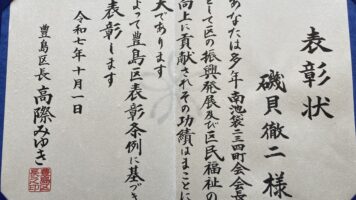 表彰状
磯貝徹二様
あなたは多年南池袋二三四町会会長
として区の振興発展及び区民福祉の
向上に貢献されその功績はまことに
大であります
よって豊島区表彰条例に基づき
表彰します
令和七年十月一日
豊島区長 高際みゆき